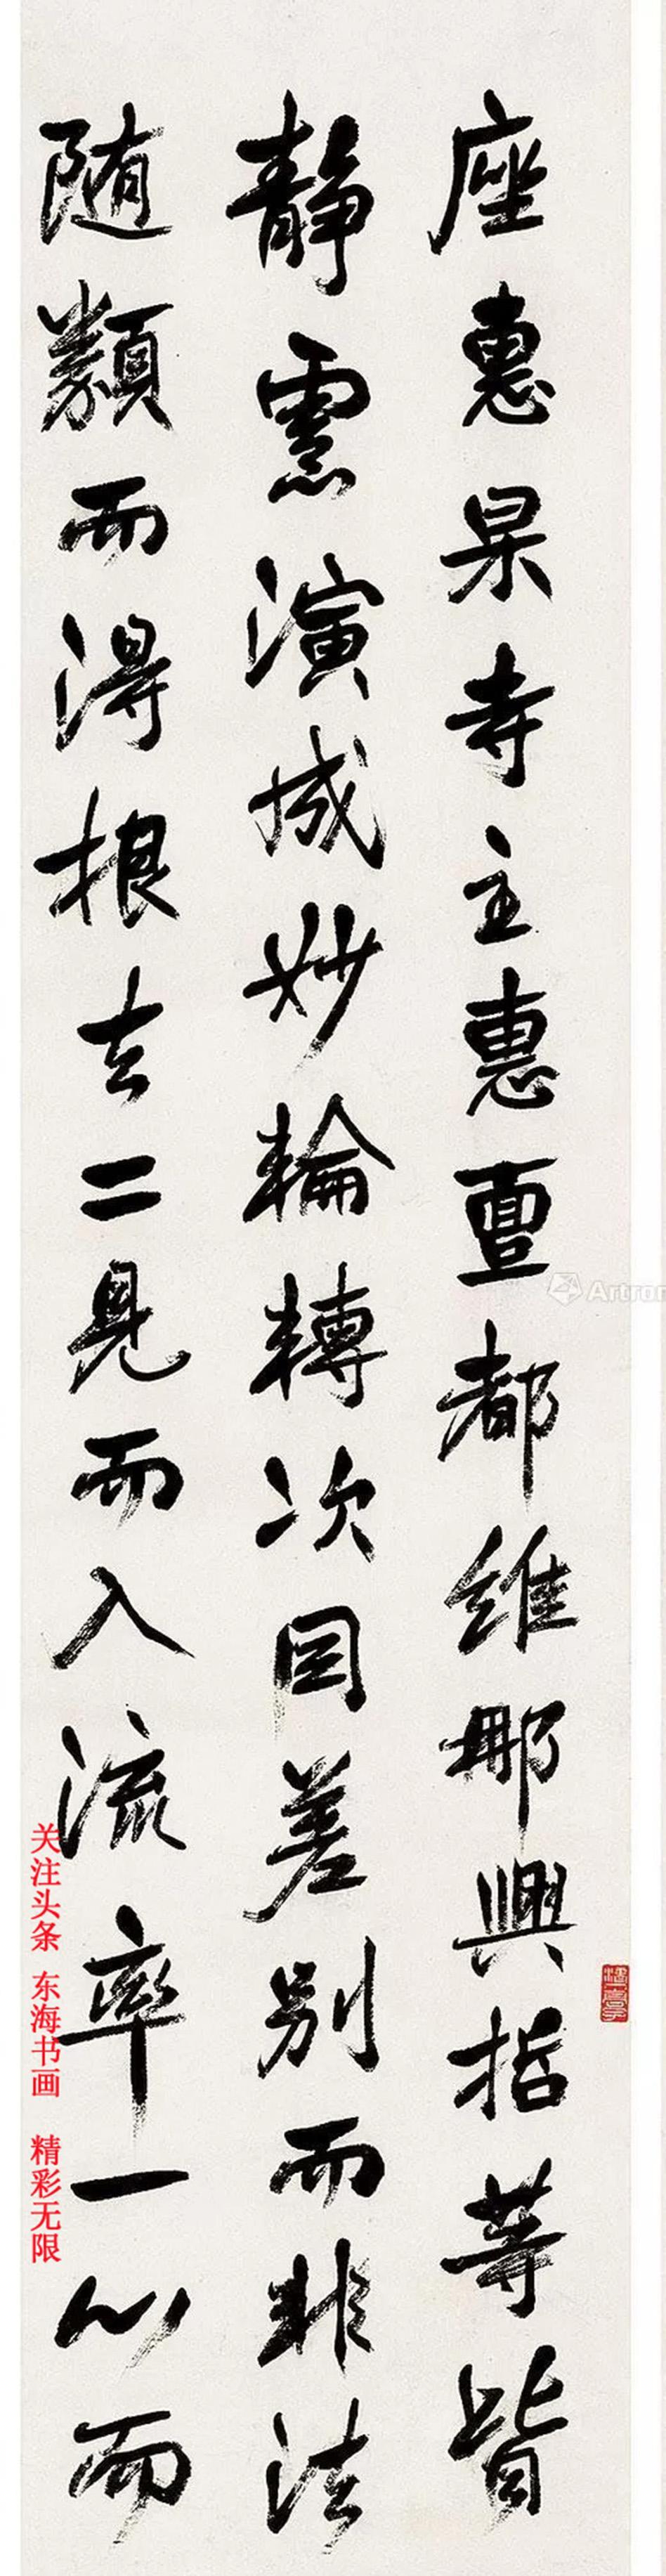 座惠杲寺主惠亶都維那興哲等皆
靜慮演成妙輪轉次因差別而非法
随類而得根去二見而入流率一心而
Artron
关注头条 东海书画 精彩无限